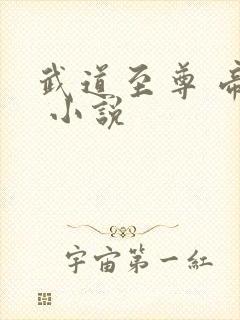 武道至尊
小說
宇宙第一紅